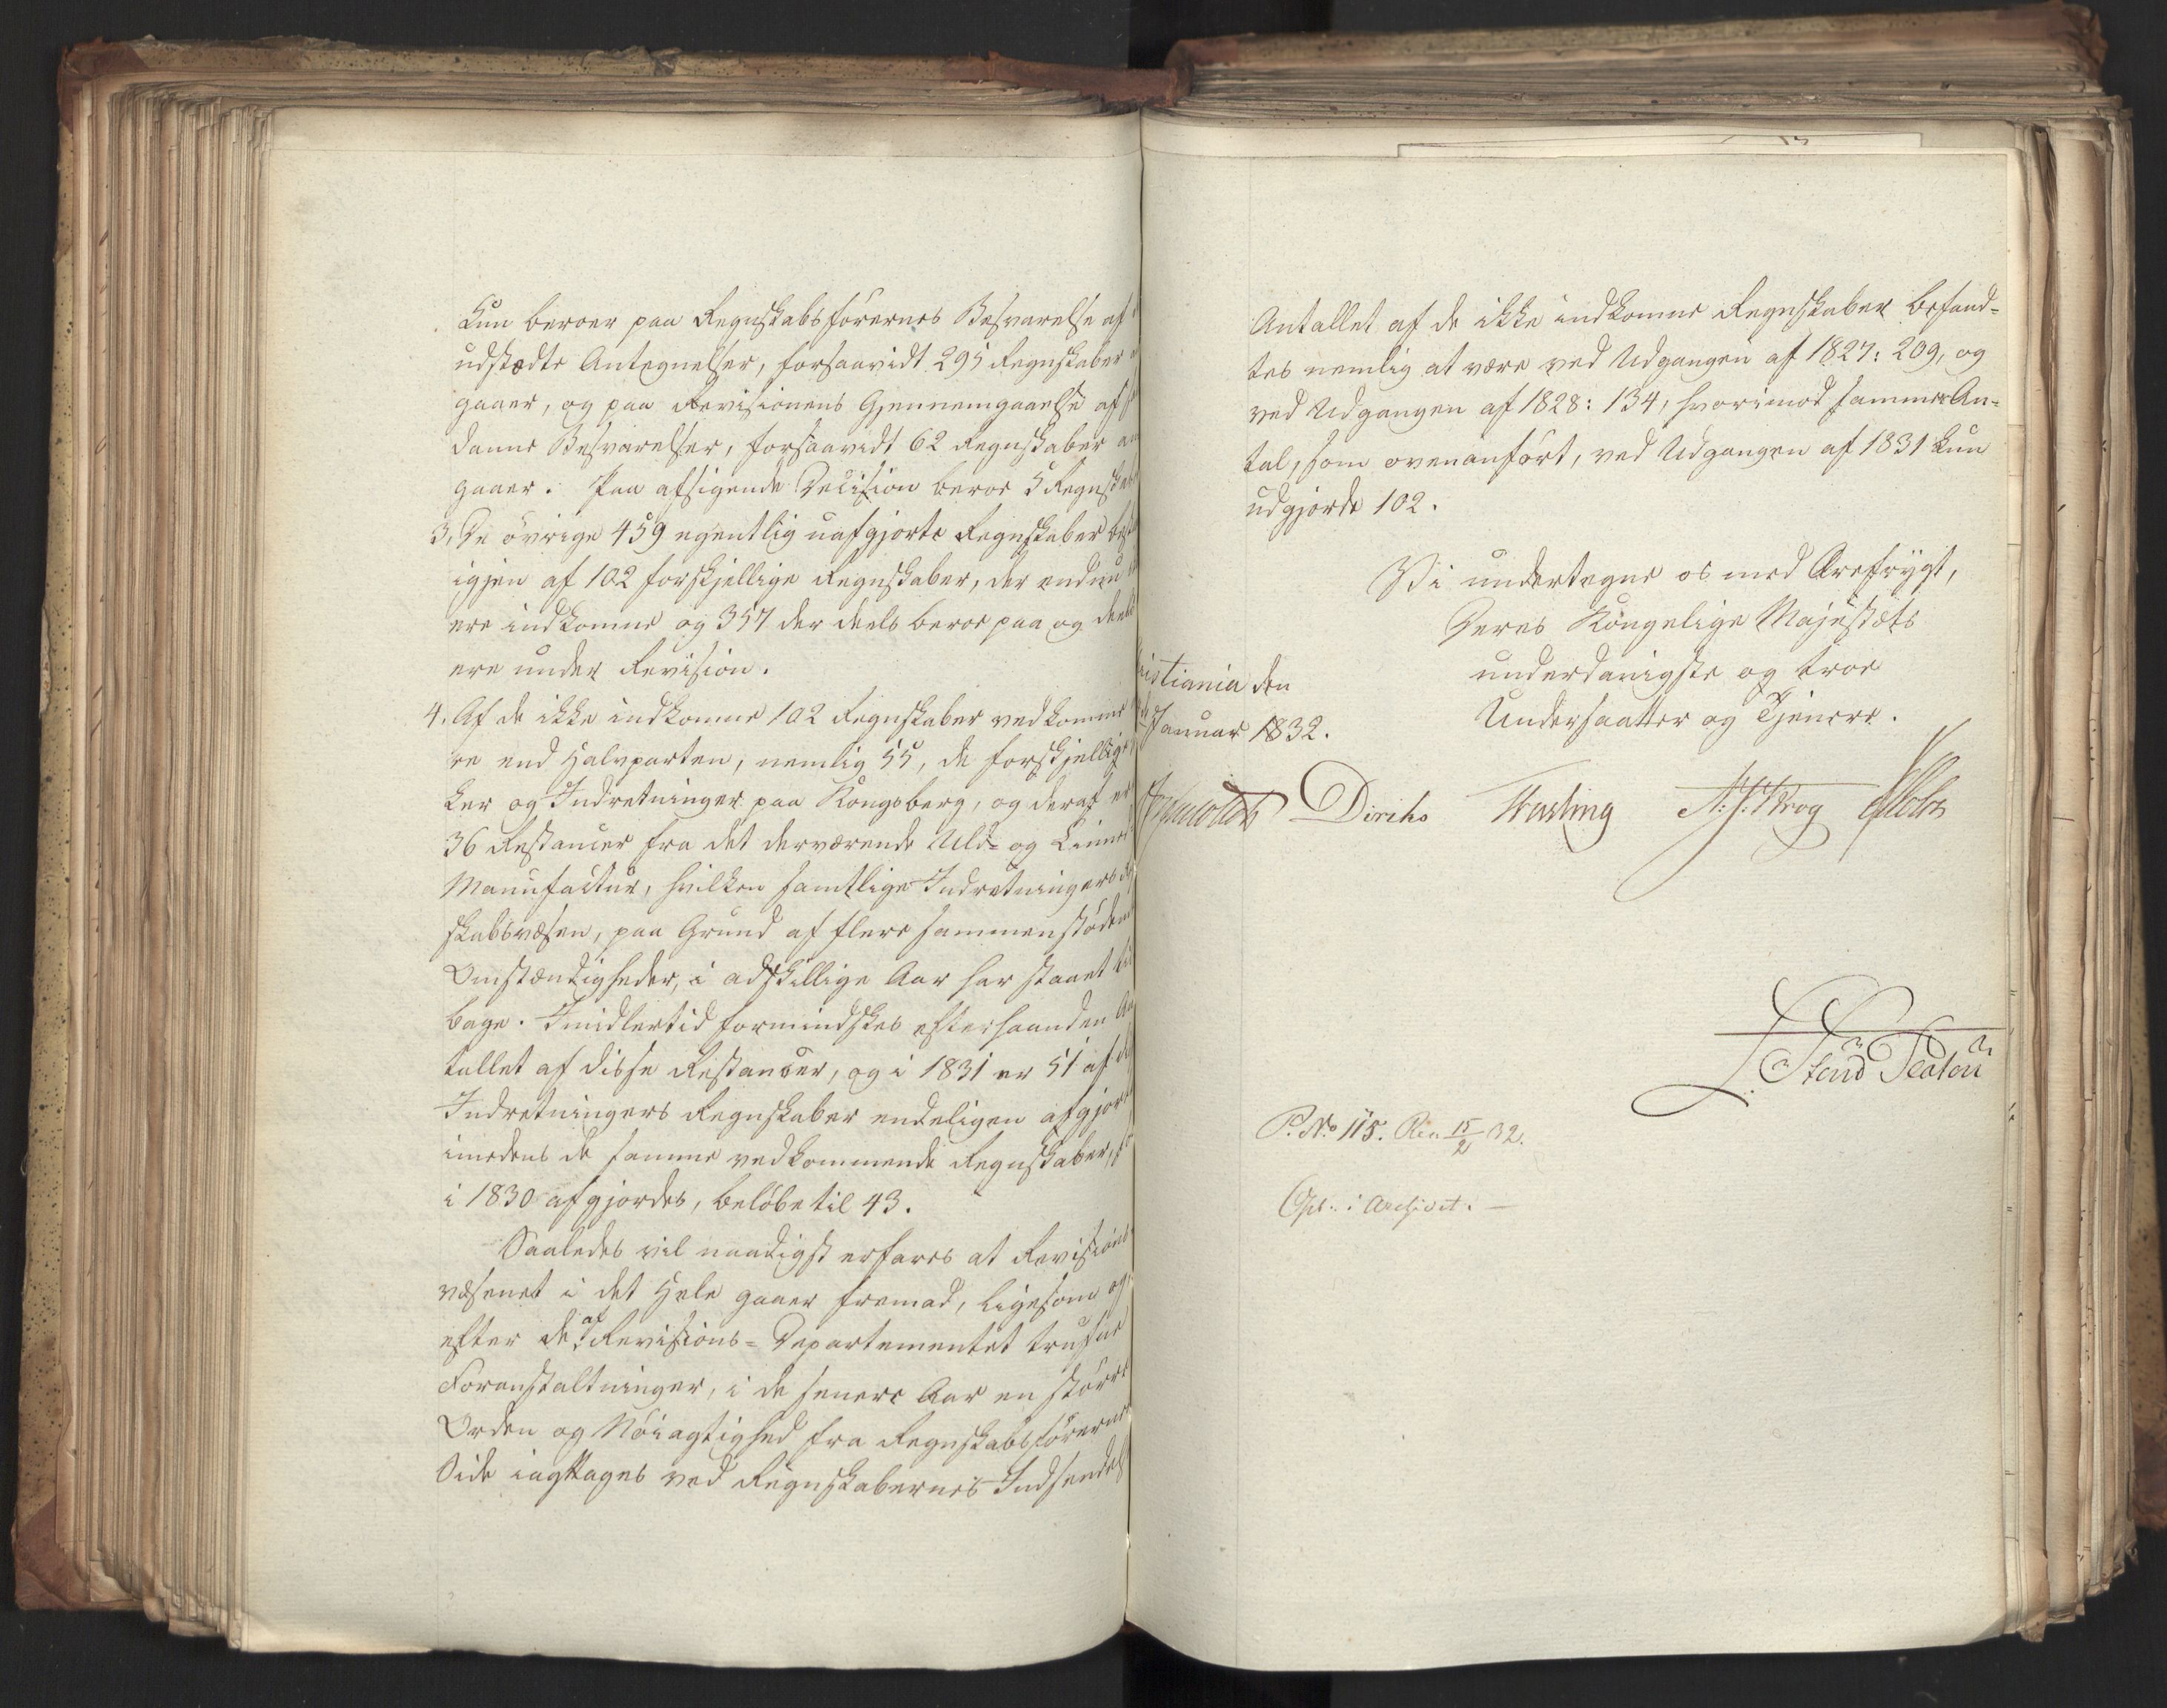 kun beroer paa Regnskabsførernes Besvarelse af
udstædte Antegnelser, forsaavidt 295 Regnskaber
gaaer, og paa Revisionens Gjennemgaaelse af
danne Besvarelser, forsaavidt 62 Regnskaber an
gaaer. Paa afsigende Decision beroe 5 Regnskab
3, De övrige 459 egentlig uafgjorte Regnskaber best
igjen af 102 forskjellige Regnskaber, der endnu
ere indkomne og 357 der deels beroe paa og deels
ere under Revision.
4. Af de ikke indkomne 102 Regnskaber vedkomme
re end Halvparten, nemlig 55, de forskjellige
ker og Indretninger paa Kongsberg, og deraf er
36 Restancer fra det derværende Uld- og Linned
Manufactur, hvilken samtlige Indretningers
skabsvæsen, paa Grund af flere sammenstødende
Omstændigheder, i adskillige Aar har staaet til
bage. Imidlertid formindskes efterhaanden An
tallet af disse Restancer, og i 1831 er 51 af
Indretningers Regnskaber endeligen afgjort
imedens de samme vedkommende Regnskaber,
i 1830 afgjordes, beløbe til 43.
Saaledes vil naadigst erfares at Revisions
væsenet i det Hele gaaer fremad, ligesom og
efter de af Revisions-Departementet trufne
Foranstaltninger, i de senere Aar en større
Orden og Nöiagtighed fra Regnskabsförernes
Side iagttages ved Regnskabernes Indsendelse
Antallet af de ikke indkomne Regnskaber befand-
tes nemlig at være ved Udgangen af 1827: 209, og
ved Udgangen af 1828: 134, hvorimod samme An-
tal, som ovenanfört, ved Udgangen af 1831 kun
udgjorde 102.
Vi undertegne os med Ærefrygt,
Deres Kongelige Majestæts
underdanigste og troe
Undersaatter og Tjenere.
istiania den
Januar 1832.
Diriks Fasting
P. No 115. Res. 15/2 32.
Opl. i Archivet. —